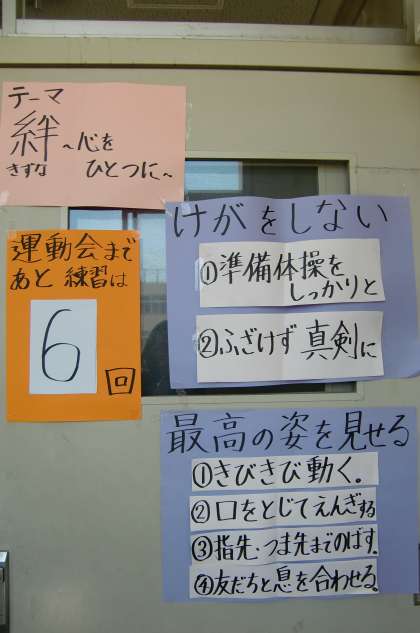 テーマ
絆
きずな
～心を
ひとつに～
運動会まで
あと 練習は
6
回
けがをしない
①準備体操を
しっかりと
②ふざけず 真剣に
最高の姿を見せる
①きびきび動く。
②口をとじてえんぎする
③指先・つま先までのばす。
④友だちと息を合わせる。